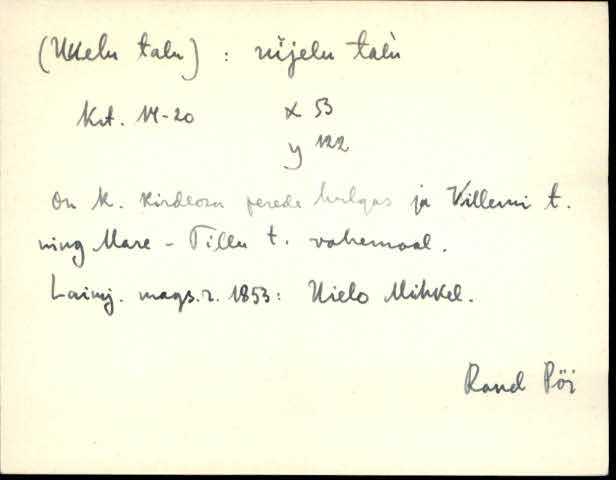 (Ukelu talu) : nijelu talù
Krt. M-20 x 53
y 122
On k. kirdeosa perede hulgas ja Villemi t.
ning Mare - Tillu t. vahemaal.
Laimj. mags.r. 1853: Nielo Mihkel.
Rand Pöi